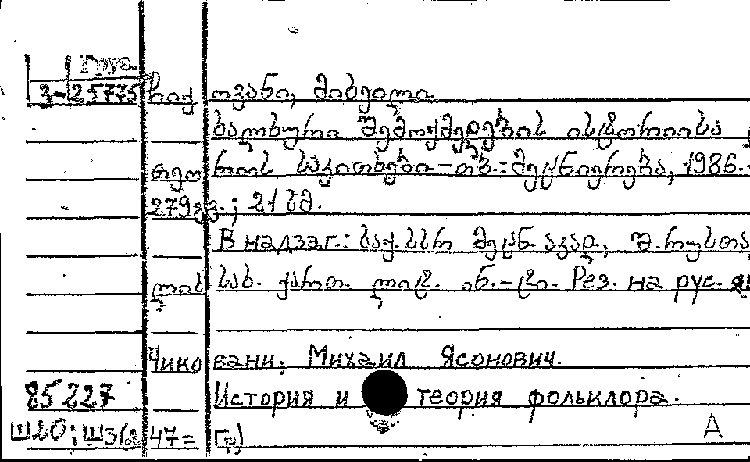 3-25775 ჩიქოვანი, მიხეილი
ხალხური შემოქმედების ისტორიისა
თეორიის საკითხები - თბ.: მეცნიერება, 1986.-
279გვ.; 21სმ.
В надзаг.: საქ. სსრ მეცნ. აკად, შ. რუსთა
ლის სახ. ქართ. ლიტ. ინ.-ტი. Рез. на рус. я
Чиковани, Михаил Ясонович.
85227 История и теория фольклора.
Ш20; Ш3(2 47= Гр) А